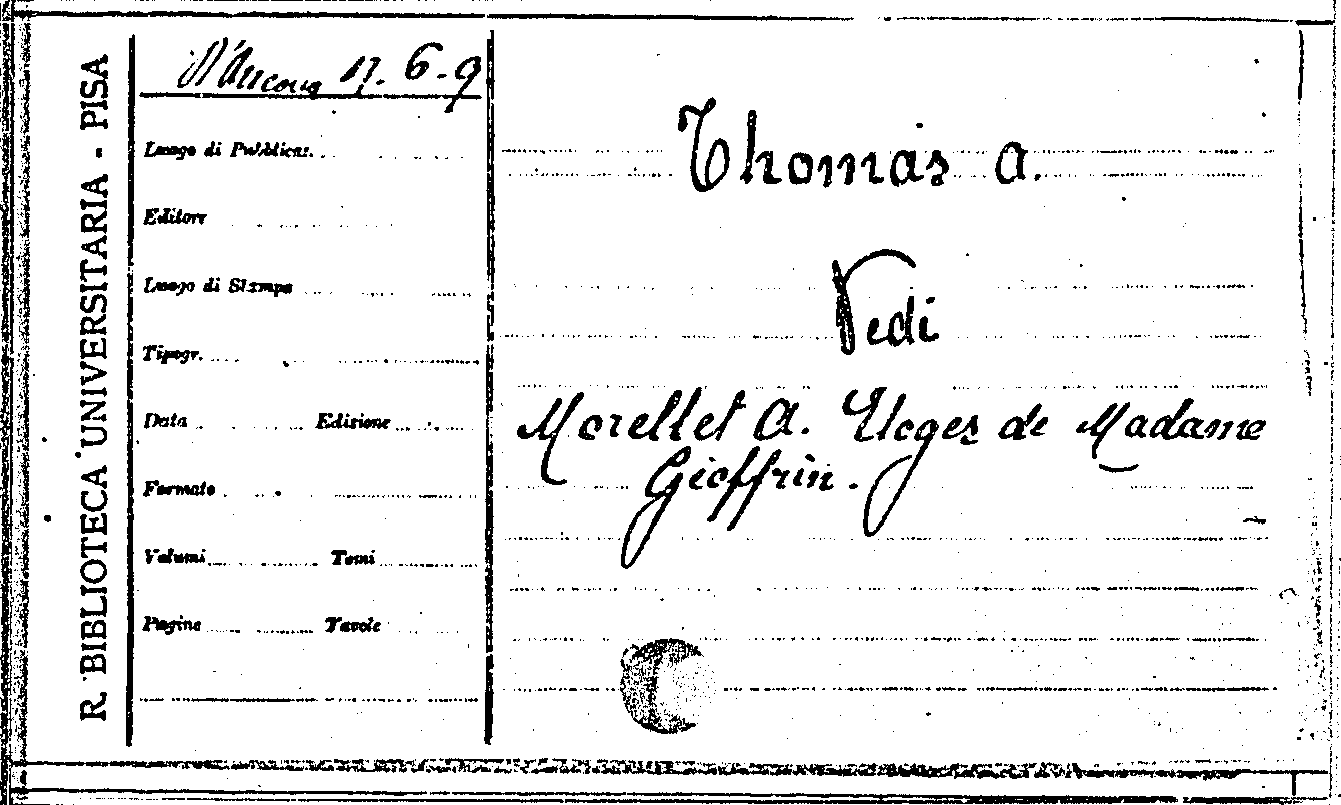 R. BIBLIOTECA UNIVERSITARIA - PISA
D'Ancona 17. 6 - 9
Luogo di Pubblicaz.
Editore
Luogo di Stampa
Tipogr.
Data Edizione
Formato
Volumi Tomi
Pagine Tavole
Thomas A.
Vedi
Morellet A. Eloges de Madame
Gieffrin.